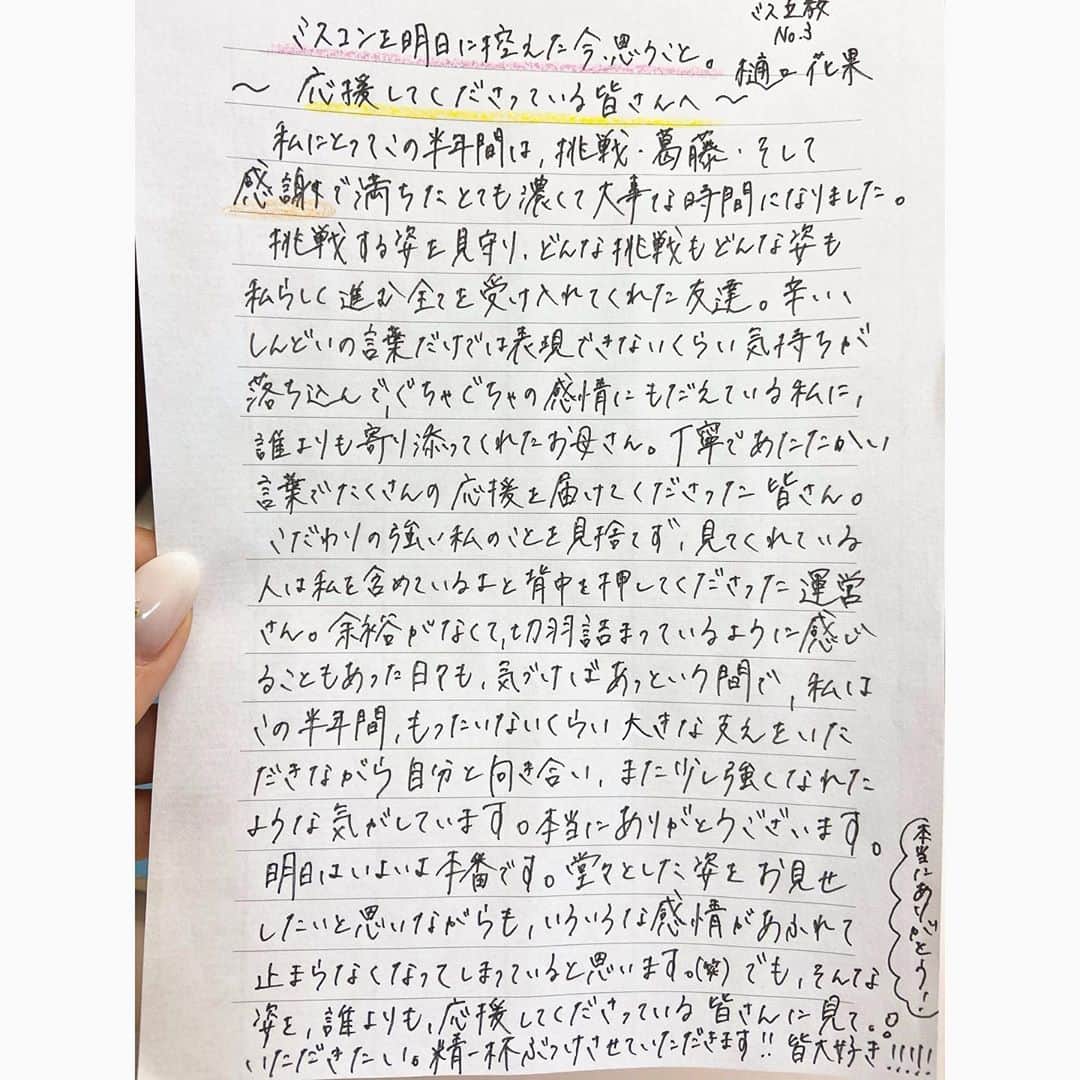 ミスコンを明日に控えた今、思うこと。
ミス立教
No.3
樋口花果
～ 応援してくださっている皆さんへ ～
私にとってこの半年間は、挑戦・葛藤・そして
感謝で満ちたとても濃くて大事な時間になりました。
挑戦する姿を見守り、どんな挑戦もどんな姿も
私らしく進む全てを受け入れてくれた友達。辛い、
しんどいの言葉だけでは表現できないくらい気持ちが
落ち込んで、ぐちゃぐちゃの感情にもだえている私に、
誰よりも寄り添ってくれたお母さん。丁寧であたたかい
言葉でたくさんの応援を届けてくださった皆さん。
こだわりの強い私のことを見捨てず、見てくれている
人は私を含めているよと背中を押してくださった運営
さん。余裕がなくて、切羽詰まっているように感じ
ることもあった日々も、気づけばあっという間で、私は
この半年間、もったいないくらい大きな支えをいた
だきながら自分と向き合い、また少し強くなれた
ような気がしています。本当にありがとうございます。
明日はいよいよ本番です。堂々とした姿をお見せ
したいと思いながらも、いろいろな感情があふれて
止まらなくなってしまっていると思います。(笑) でも、そんな
姿を、誰よりも、応援してくださっている皆さんに見て。
いただきたい。精一杯ぶつけさせていただきます!! 皆大好き!!!!!
本当にありがとう!